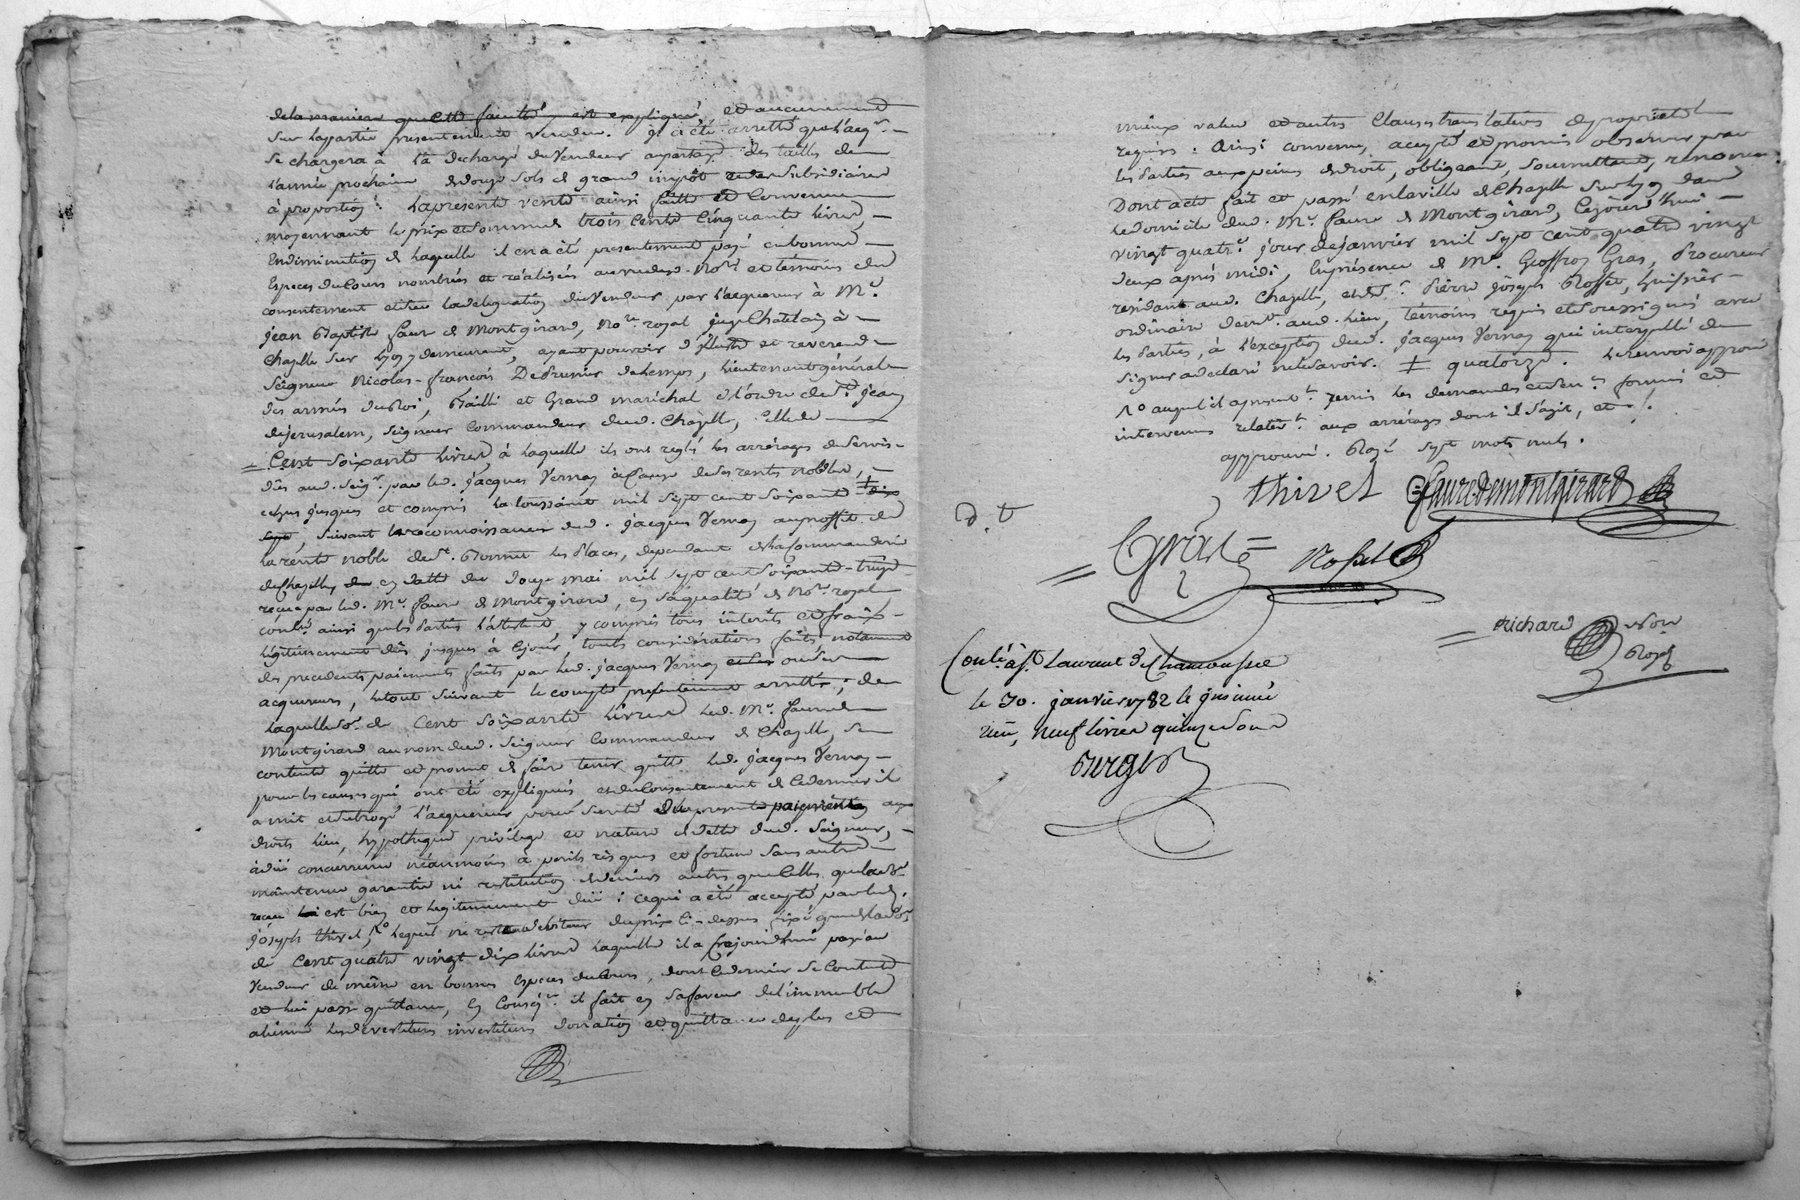 dela maniere quelle faculté y est expliqué, et aucunement
sur lapartie presentement vendue. Il a été arretté que l'acqr. -
se chargera à la decharge du vendeur apartagé des tailles de
l'année prochaine dedouze sols de grand impôt et des subsidiaires
à proportion. La presente vente ainsi faitte et convenue
moyennant le prix et somme de trois cents cinquante livres, -
en diminution de laquelle il en a été presentement payé en bonnes -
especes du cours nombrées et réalisées au vu desd. Nores et témoins du
consentement et de la delegation du vendeur par l'acquereur à Mr.
jean Baptiste faure de Montgirard, Nore. royal juge Chatelain à -
Chazelle sur Lyon y demeurant, ayant pouvoir d'illustre et reverend -
Seigneur Nicolas-françois DePrunier delemps, lieutenant général
des armées du Roi, Bailli et Grand maréchal de l'ordre de St. jean
de jerusalem, seigneur commandeur dud. Chazelle, celle de
= Cent soixante livres, à laquelle ils ont reglés les arrérages de servis -
dûs aud. seigr. par led. jacques Vernay à cause de ses rentes nobles, -
echus jusques et compris la toussaint mil sept cent soixante ‡ dix
sept suivant la reconnoissance dud. jacques Vernay au proffit de
la rente noble de St. Bonnet les Places, dependant de la Commanderie
de Chazelle, en datte du douze mai mil sept cent soixante-treize
reçue par led. Mr. faure de Montgirard, en sa qualité de Nore. royal
ainsi que les Parties l'attestent, y compris tous intérêts et fraix -
légitimement dûs jusques à ce jour, toutes considérations faites notamment
des precedents paiements faits par led. jacques Vernay
acquereurs, le tout suivant le compte presentement arretté; de
laquelle se. de cent soixante livres led. Mr. faure de
Montgirard au nom dud. Seigneur Commandeur de Chazelle, se
contente quitte et promet de faire tenir quitte led. jacques Vernay -
pour les causes qui ont été expliquées et du consentement de ce dernier il
a mit et subrogé l'acquereur pour sureté du present paiement aux
droits lieu, hypotheque privilege et nature de dette dud. Seigneur, -
icelui concurrence néanmoins à perils risques et fortune sans autre
maintenue garantie ni restitution de deniers autres que celles que la se.
reçue lui est bien et legitimement due: ce qui a été accepté par led.
joseph thivel, No lequel ne reste debiteur du prix ci-dessus fixé que de la se.
de cent quatre vingt dix livres laquelle il a cejourdhui payé au
Vendeur de même en bonnes especes du cours, dont ce dernier se contente
et lui passe quittance, En conséqce. il fait en sa faveur de l'immeuble
aliené les devestitures investitures donation et quittance des plus et
mieux value et autres Clauses translatives de propriété
requises: Ainsi convenu, accepté et promis observer par
les Parties aux peines de droit, obligeant, soumettant, renonceant
Dont acte fait et passé en la ville de Chazelle sur Lyon dans
le domicile dud. Mr. faure de Montgirard, Cejourd'hui -
vingt quatre. jour de janvier mil sept cent quatre vingt
deux après midi, En présence de Me. Geoffroy Gras, Procureur
residant aud. Chazelle, et de Sr. Pierre joseph Rosset, huissier -
ordinaire demt. aud. lieu, témoins requis et soussignés avec
les Parties, à l'exception dud. jacques Vernay qui interpellé de
signer a declaré ne le savoir. ‡ quatorze. le renvoi approuvé
No auquel il a presentt. remis les demandes formées et
intervenues relativt. aux arrérages dont il s'agit, et./.
approuvé. Rayé sept mots nuls.
thivel Fauredemontgirard
D. V
Gras = Rosset
richard Nore
Royal
Conlé. à St. Laurent de Chamousset
le 30. janvier 1782 le insinué
reçu, neuf livres quinze sous
Berger